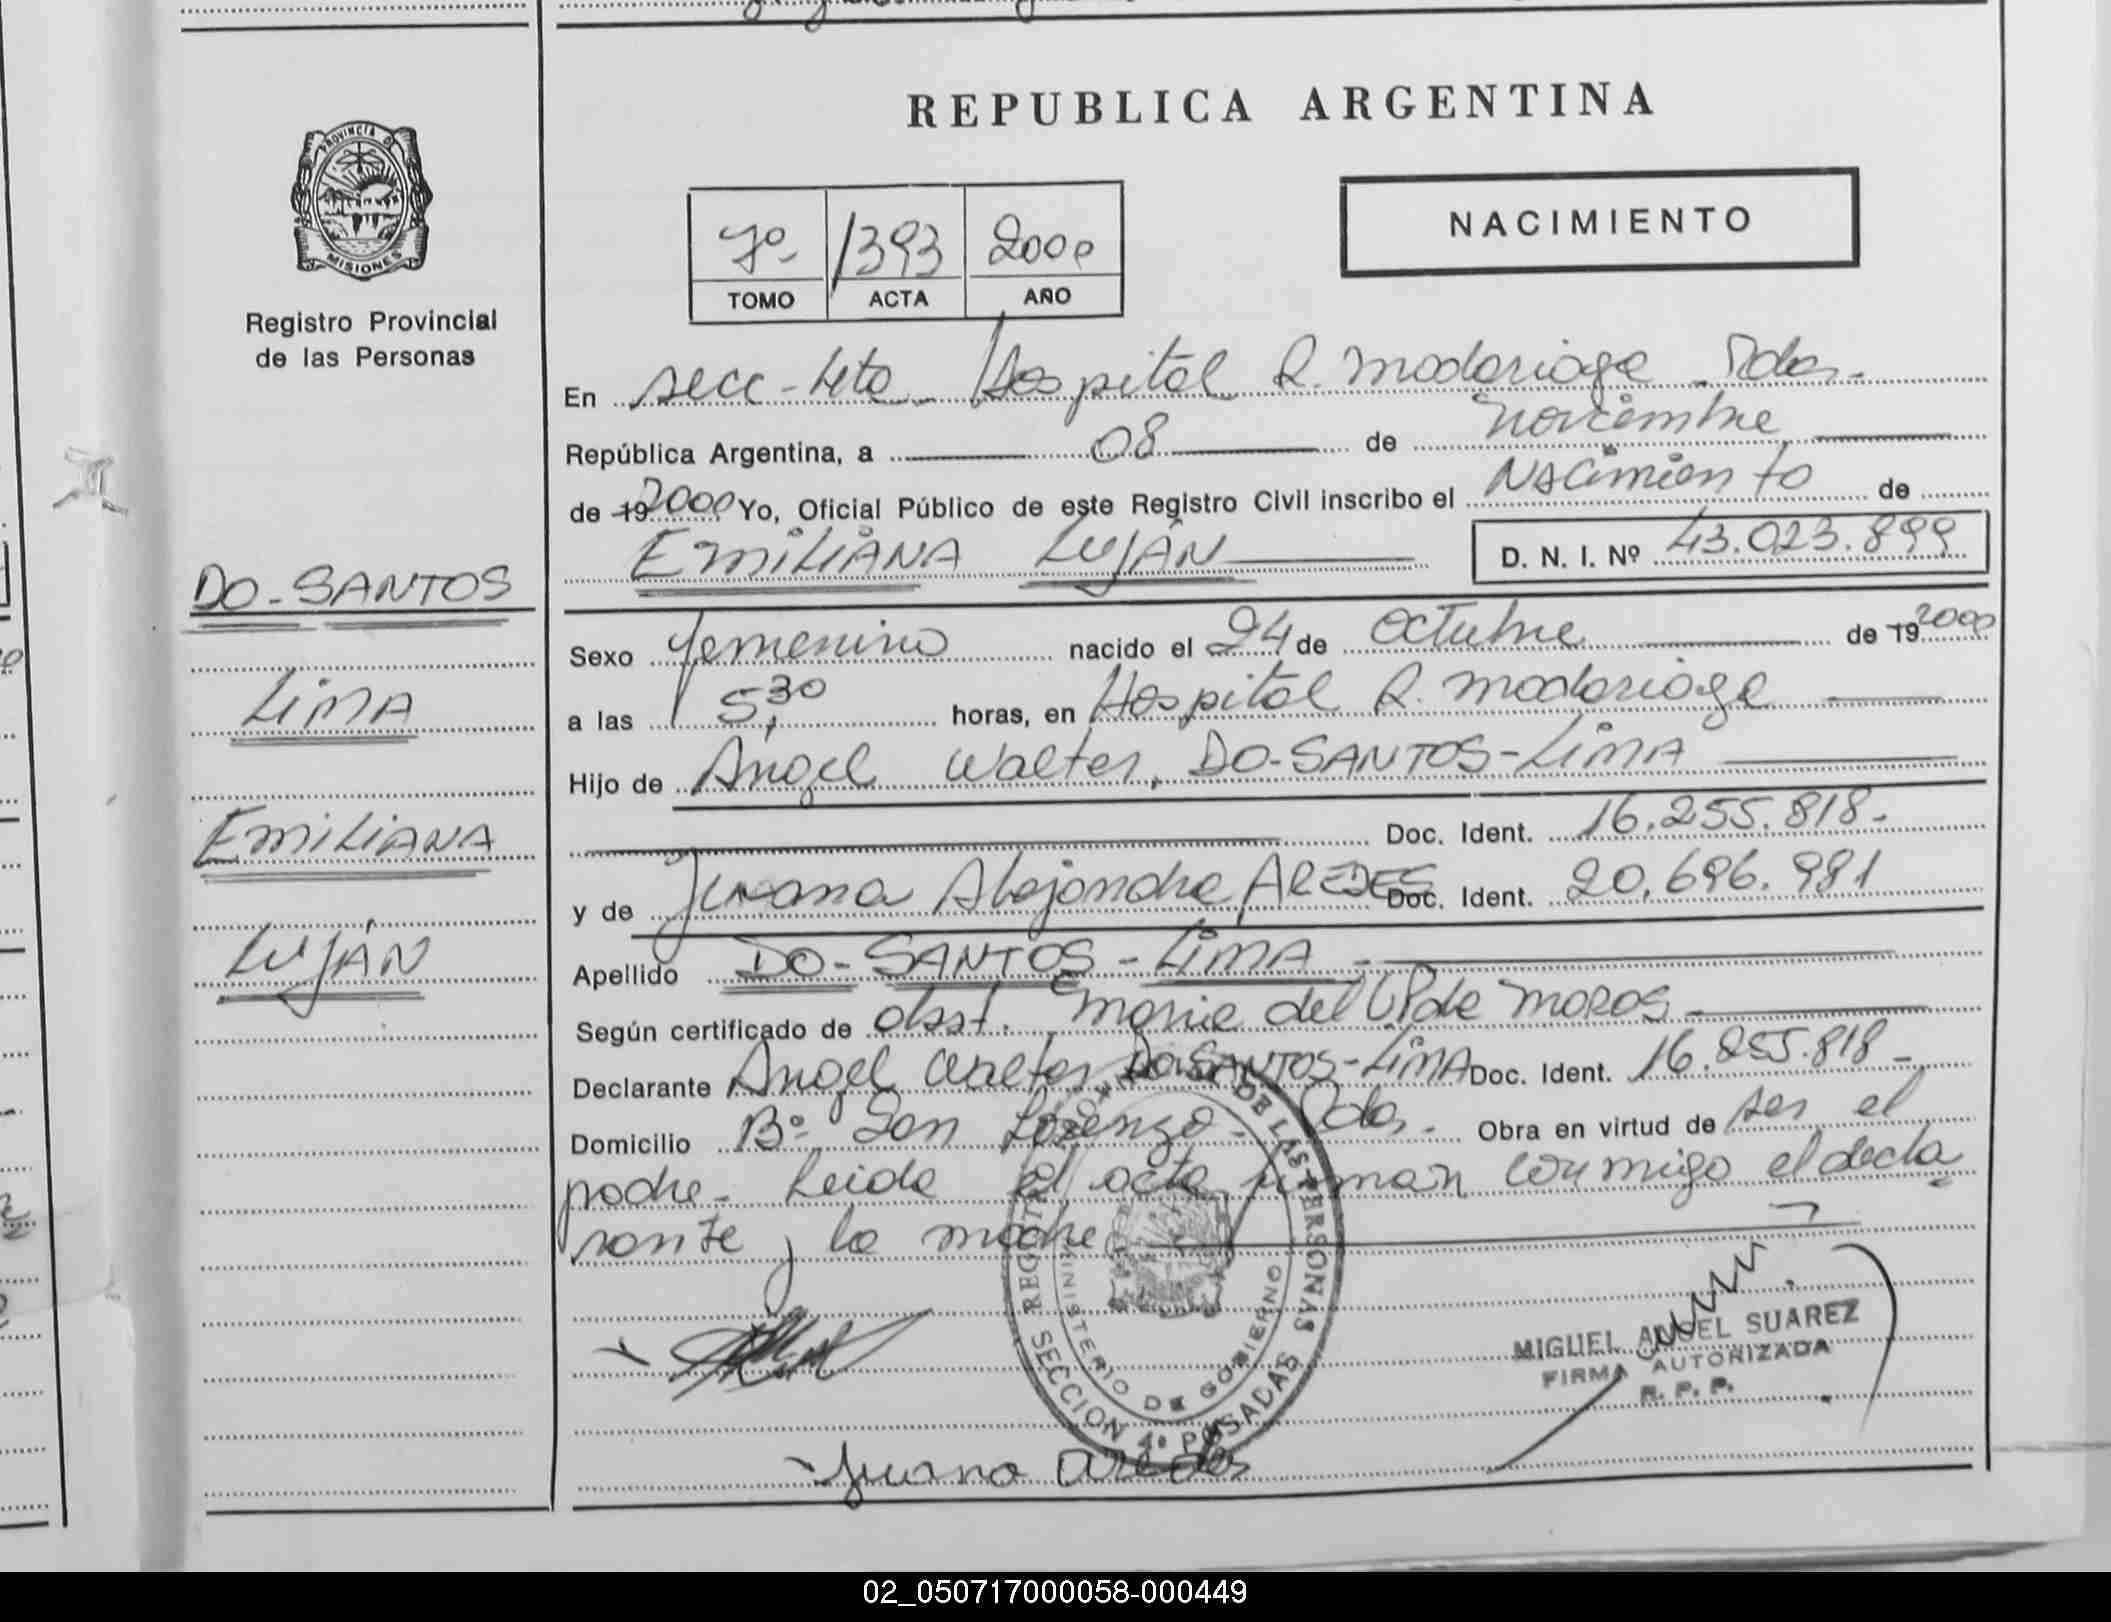 PROVINCIA DE
MISIONES
Registro Provincial
de las Personas
DO-SANTOS
LIMA
EMILIANA
LUJÁN
REPUBLICA ARGENTINA
NACIMIENTO
7º 1393 2000
TOMO ACTA AÑO
En secc-4ta Hospital R. Madariaga Pdas.
República Argentina, a 08 de noviembre
de 19 2000 Yo, Oficial Público de este Registro Civil inscribo el Nacimiento de
EMILIANA LUJÁN D. N. I. Nº 43.023.899
Sexo femenino nacido el 24 de octubre de 19 2000
a las 5,30 horas, en Hospital R. Madariaga
Hijo de Angel Walter, DO-SANTOS-LIMA
Doc. Ident. 16.255.818.-
y de Juana Alejandra AREDES Doc. Ident. 20.696.981
Apellido DO-SANTOS-LIMA-
Según certificado de obst. Maria del de MOROS
Declarante Angel Walter DO-SANTOS-LIMA Doc. Ident. 16.255.818-
Domicilio Bº San Lorenzo- Pdas. Obra en virtud de ser el
padre- Leida el acta firman conmigo el decla
rante y la madre
REGISTRO DE LAS PERSONAS
MINISTERIO DE GOBIERNO
SECCION 4ª POSADAS
MIGUEL ANGEL SUAREZ
FIRMA AUTORIZADA
R. P. P.
Juana Aredes
02_050717000058-000449